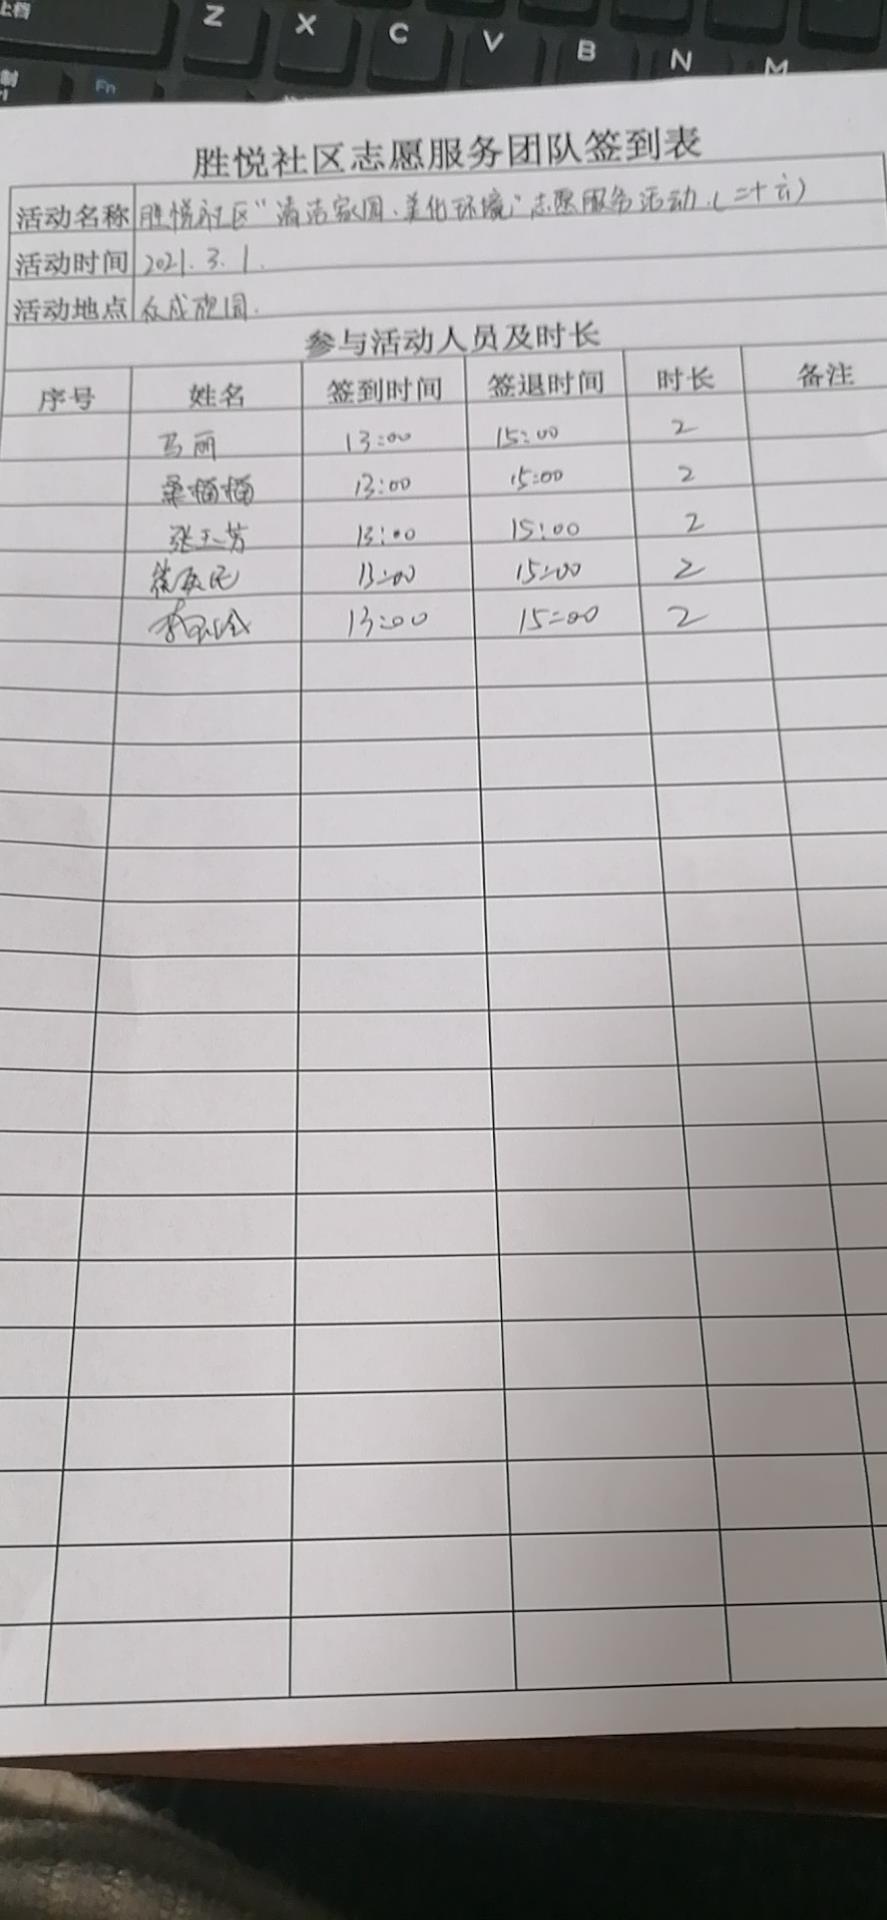 上档 Z X C V B N M
制 Fn
胜悦社区志愿服务团队签到表
活动名称 胜悦社区“清洁家园、美化环境”志愿服务活动.(二十六)
活动时间 2021.3.1.
活动地点 众成花园.
参与活动人员及时长
序号 姓名 签到时间 签退时间 时长 备注
马丽 13:00 15:00 2
桑楠楠 13:00 15:00 2
张玉芳 13:00 15:00 2
13:00 15:00 2
13:00 15:00 2